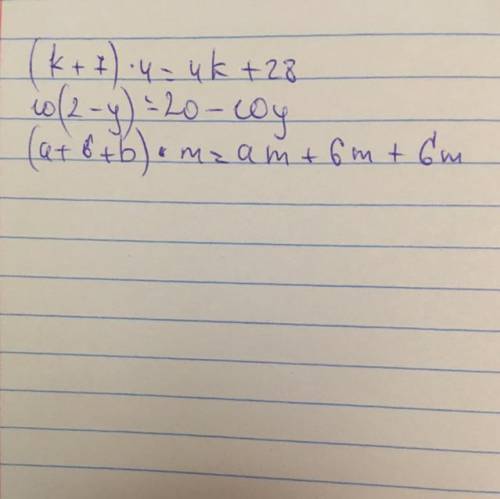 (k+7)·4=4k+28
10(2-y)=20-10y
(a+6+b)·m=am+6m+6m